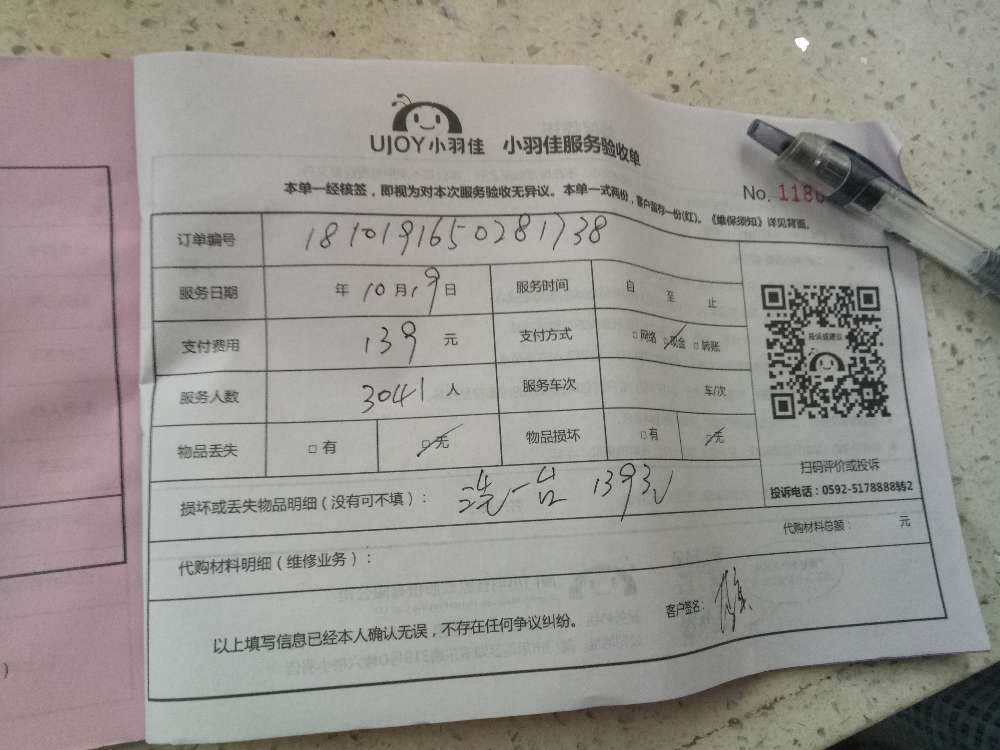 UJOY小羽佳 小羽佳服务验收单
本单一经核签，即视为对本次服务验收无异议。本单一式两份，客户留存一份(红)。《维保须知》详见背面。
No. 1180
订单编号 1810191650281738
服务日期 年 10 月 19 日 服务时间 自 至 止
支付费用 139 元 支付方式 □网络 □现金 □转账
服务人数 3041 人 服务车次 车/次
物品丢失 □有 □无 物品损坏 □有 □无
投诉或建议
扫码评价或投诉
投诉电话：0592-5178888转2
损坏或丢失物品明细（没有可不填）： 洗一台 139元
代购材料总额： 元
代购材料明细（维修业务）：
以上填写信息已经本人确认无误，不存在任何争议纠纷。 客户签名：